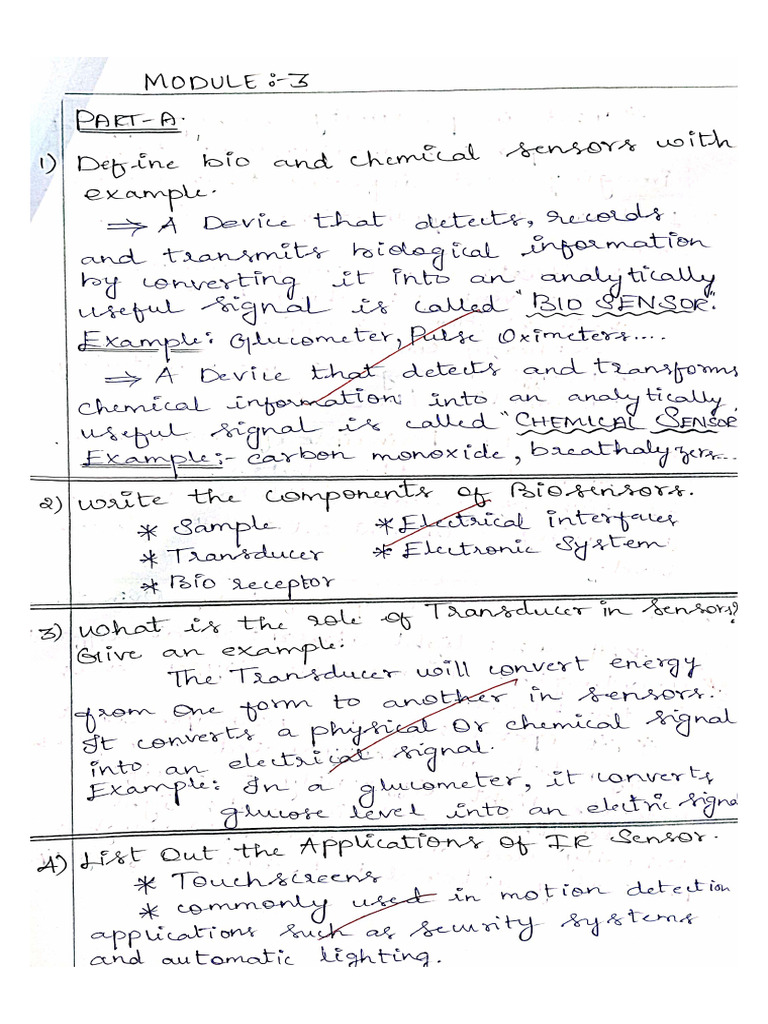 MODULE :-3
PART-A.
1) Define bio and chemical sensors with
example.
⇒ A Device that detects, records
and transmits biological information
by converting it into an analytically
useful signal is called "BIO SENSOR".
Example: Glucometer, Pulse Oximeters....
⇒ A Device that detects and transforms
chemical information into an analytically
useful signal is called "CHEMICAL SENSOR
Example:- carbon monoxide, breathalyzers...
2) Write the components of Biosensors.
* Sample * Electrical interfaces
* Transducer * Electronic System
* Bio receptor
3) What is the role of Transducer in sensors?
Give an example.
The Transducer will convert energy
from one form to another in sensors.
It converts a physical or chemical signal
into an electrical signal.
Example: In a glucometer, it converts
glucose level into an electric signal
4) List Out the Applications of IR Sensor.
* Touchscreens
* commonly used in motion detection
applications such as security systems
and automatic lighting.